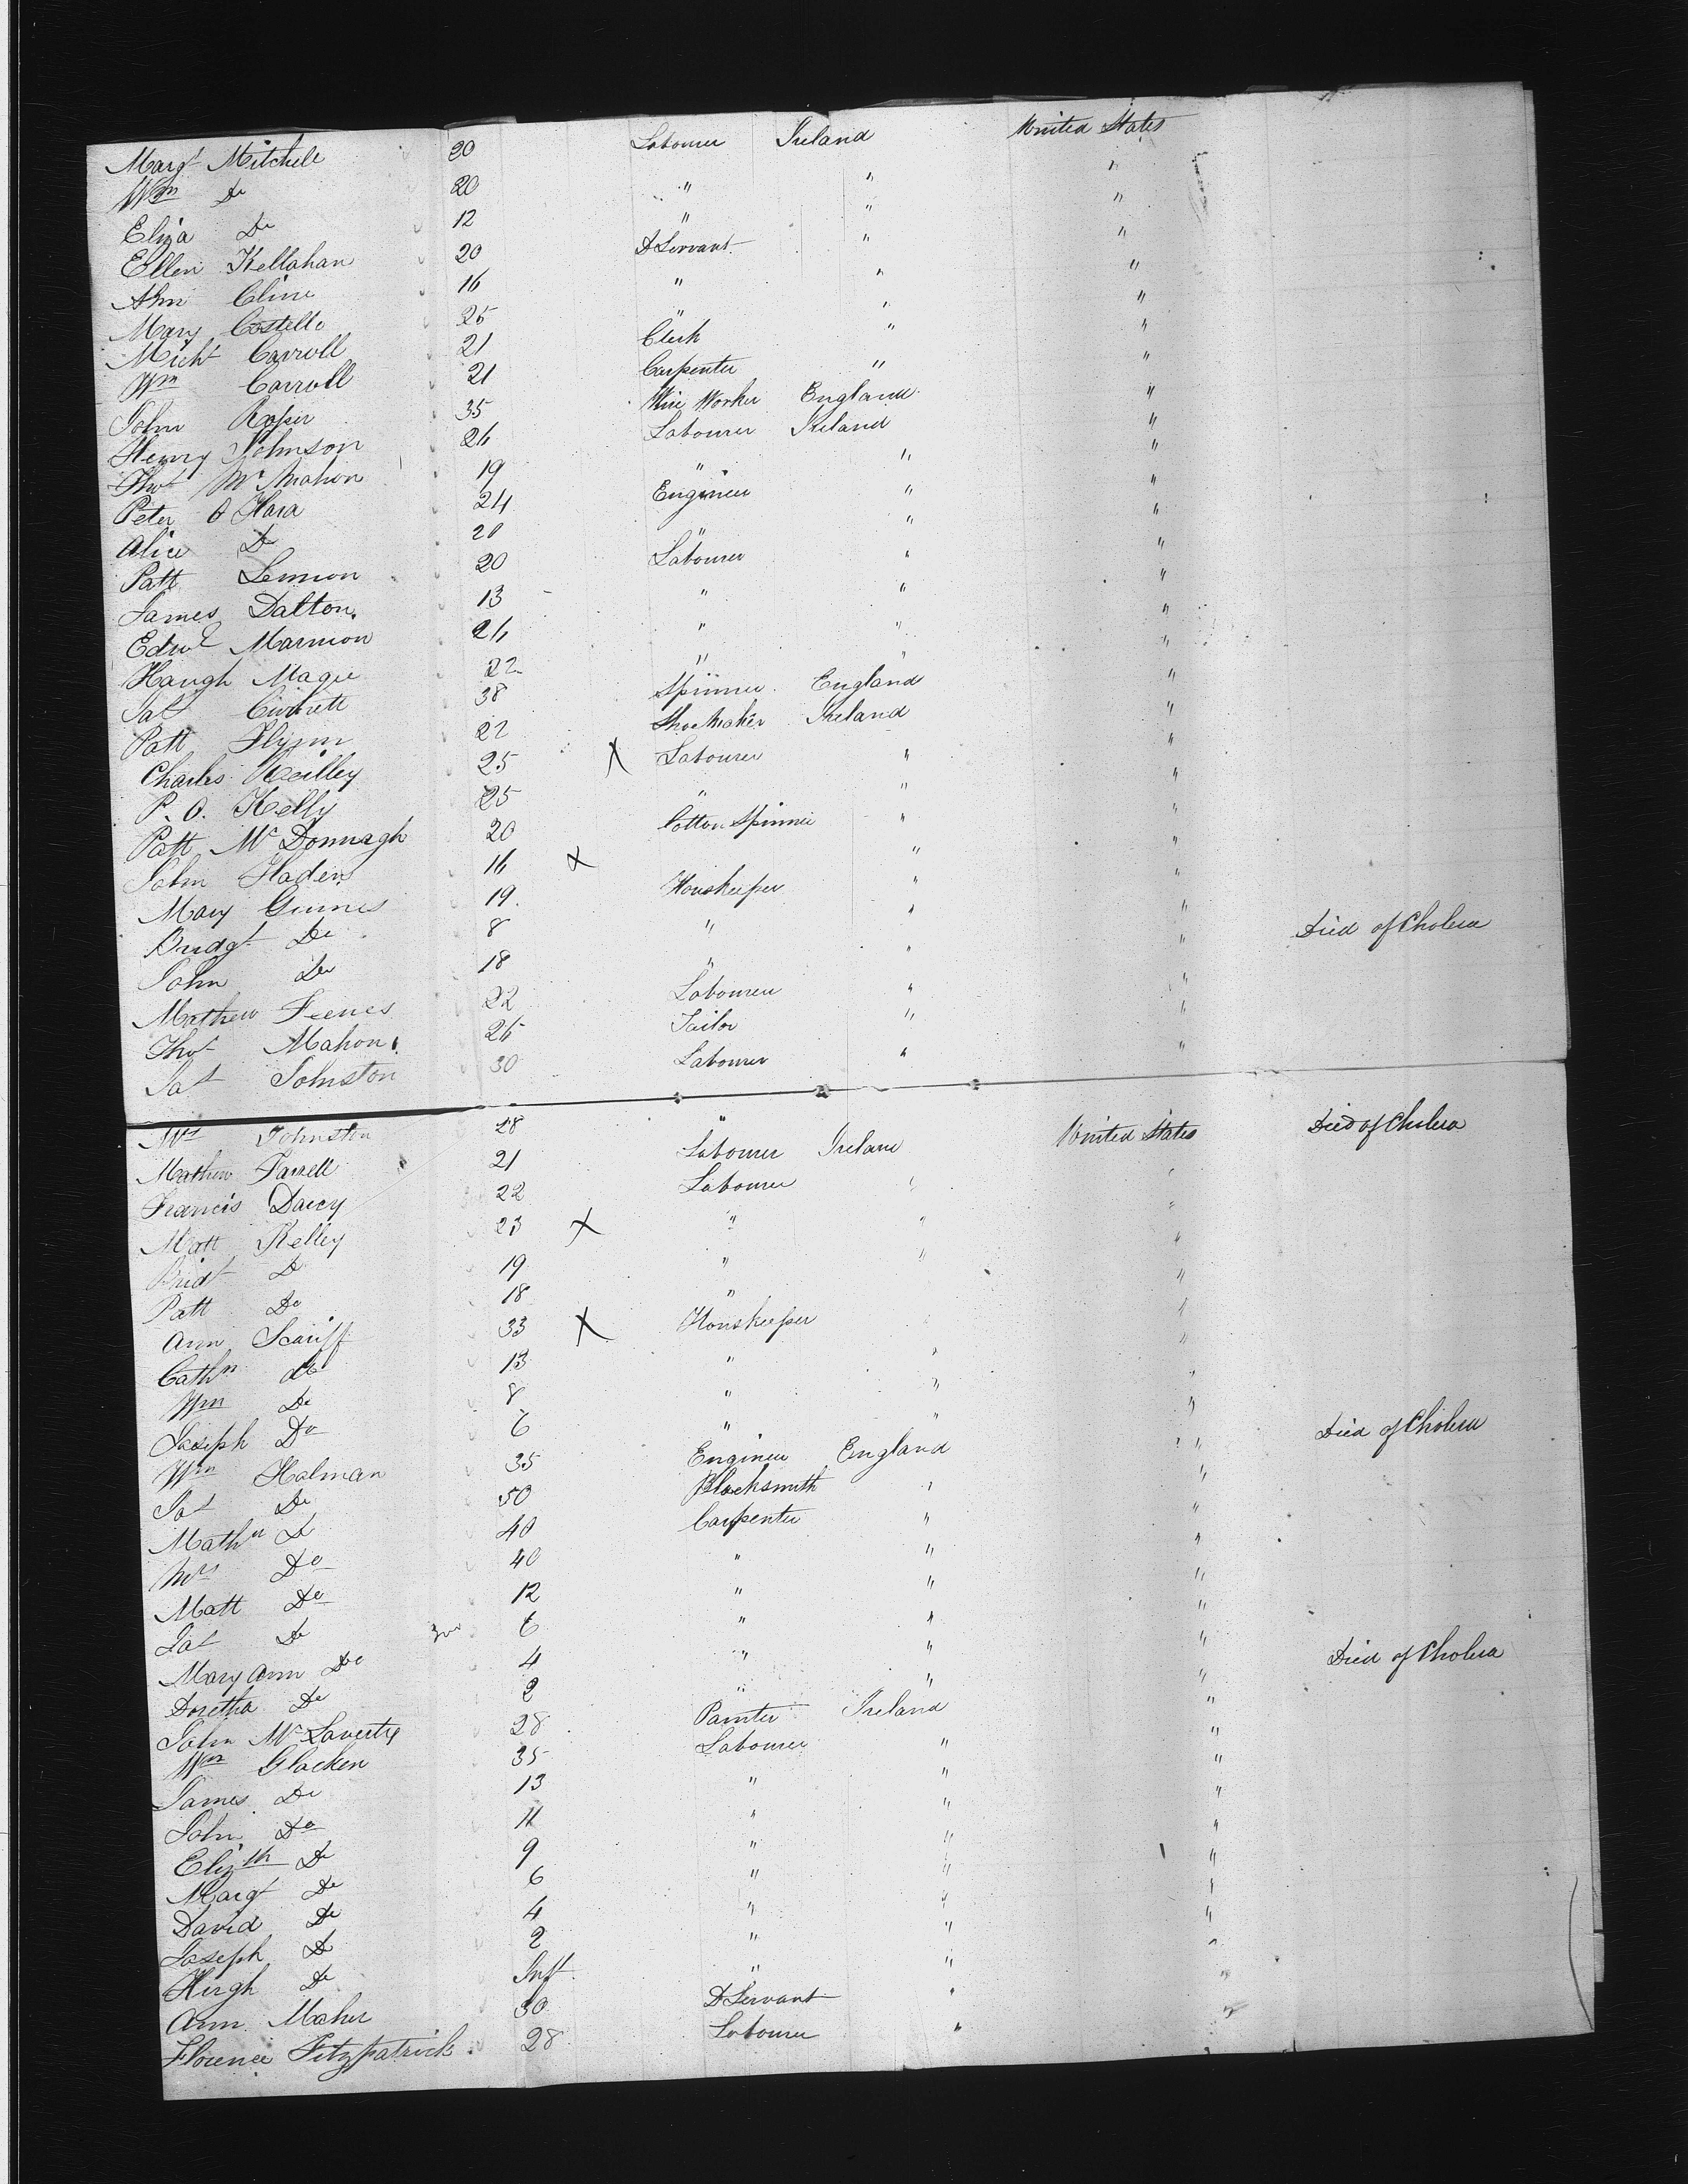 Margt Mitchell 20 Labourer Ireland United States
Wm Do 20 " " "
Eliza Do 12 " " "
Ellen Kellahan 20 D Servant " "
Ann Cline 16 " " "
Mary Costello 25 " " "
Michl Carroll 21 Clerk " "
Wm Carroll 21 Carpenter " "
John Roper 35 Wire Worker England "
Henry Johnson 26 Labourer Ireland "
Thos McMahon 19 " " "
Peter O Hara 24 Engineer " "
Alice Do 20 " " "
Patt Lennon 20 Labourer " "
James Dalton 13 " " "
Edwd Marmion 26 " " "
Haugh Magee 22 " " "
Jas 38 Spinner England "
Patt Flynn 22 Shoemaker Ireland "
Charles Reilley 25 X Labourer " "
P. O. Kelly 25 " " "
Patt McDonnagh 20 Cotton Spinner " "
John Haden 16 X " "
Mary Guines 19 Houskeeper " "
Bridgt Do 8 " " " Died of Cholera
John Do 18 " " "
Mathew Feenes 22 Labourer " "
Thos Mahon 26 Tailor " "
Jas Johnston 30 Labourer " "
Mrs Johnston 28 " United States Died of Cholera
Mathew Farrell 21 Labourer Ireland "
Francis Darcy 22 Labourer " "
Matt Kelley 23 X " " "
Bridt Do 19 " " "
Patt Do 18 " "
Ann Scariff 33 X Houskeeper " "
Cathn do 13 " " "
Wm Do 8 " " "
Joseph Do 6 " " " Died of Cholera
Wm Holman 35 Engineer England "
Jas Do 50 Blacksmith " "
Mathw Do 40 Carpenter " "
Mrs Do 40 " " "
Matt Do 12 " " "
Jas Do 6 " " "
Mary Ann Do 4 " " " Died of Cholera
Doretha Do 2 " " "
John McLaverty 28 Painter Ireland "
Wm Glacken 35 Labourer " "
James Do 13 " " "
John Do 11 " " "
Elizth Do 9 " " "
Margt Do 6 " " "
David Do 4 " " "
Joseph Do 2 " " "
Hergh Do Inft " " "
Ann Maher 30 D Servant " "
Florence Fitzpatrick 28 Labourer " "